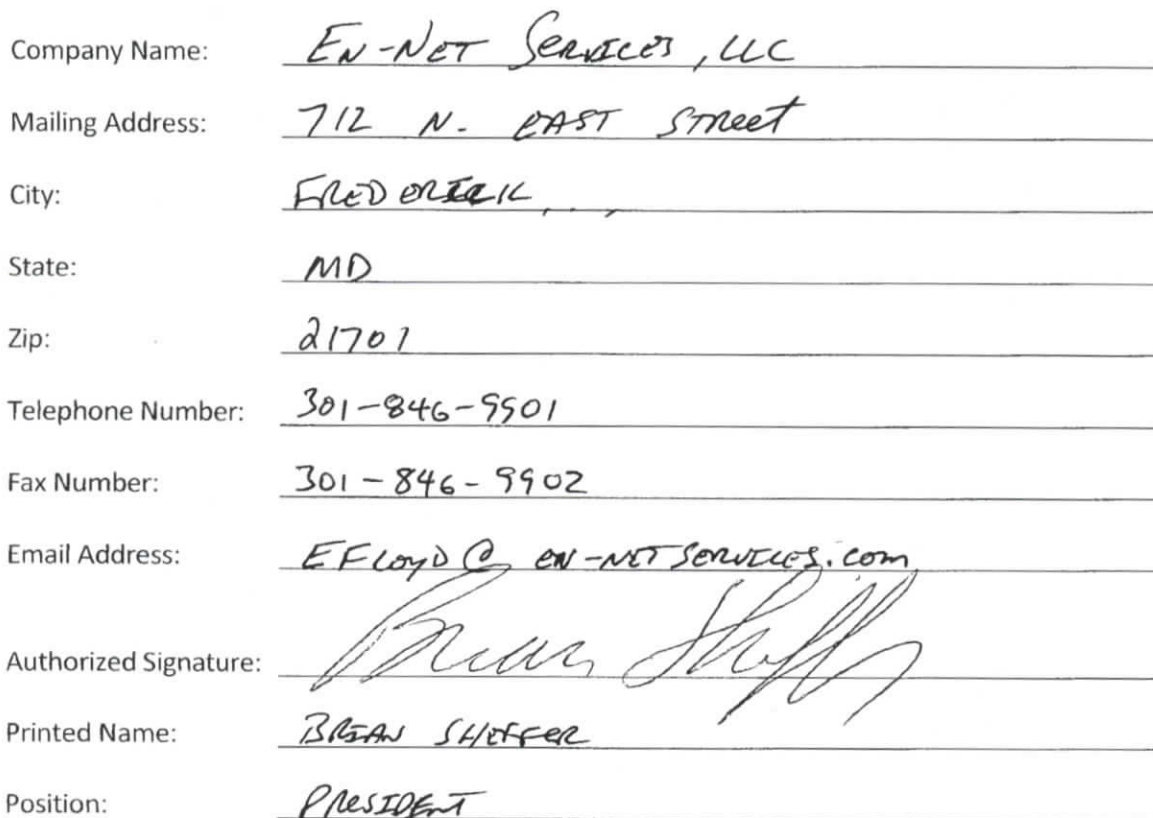 Company Name: EN-NET SERVICES, LLC
Mailing Address: 712 N. EAST STREET
City: FREDERICK
State: MD
Zip: 21701
Telephone Number: 301-846-9901
Fax Number: 301-846-9902
Email Address: EFLOYD@EN-NETSERVICES.COM
Authorized Signature: Brian Sheffer
Printed Name: BRIAN SHEFFER
Position: PRESIDENT